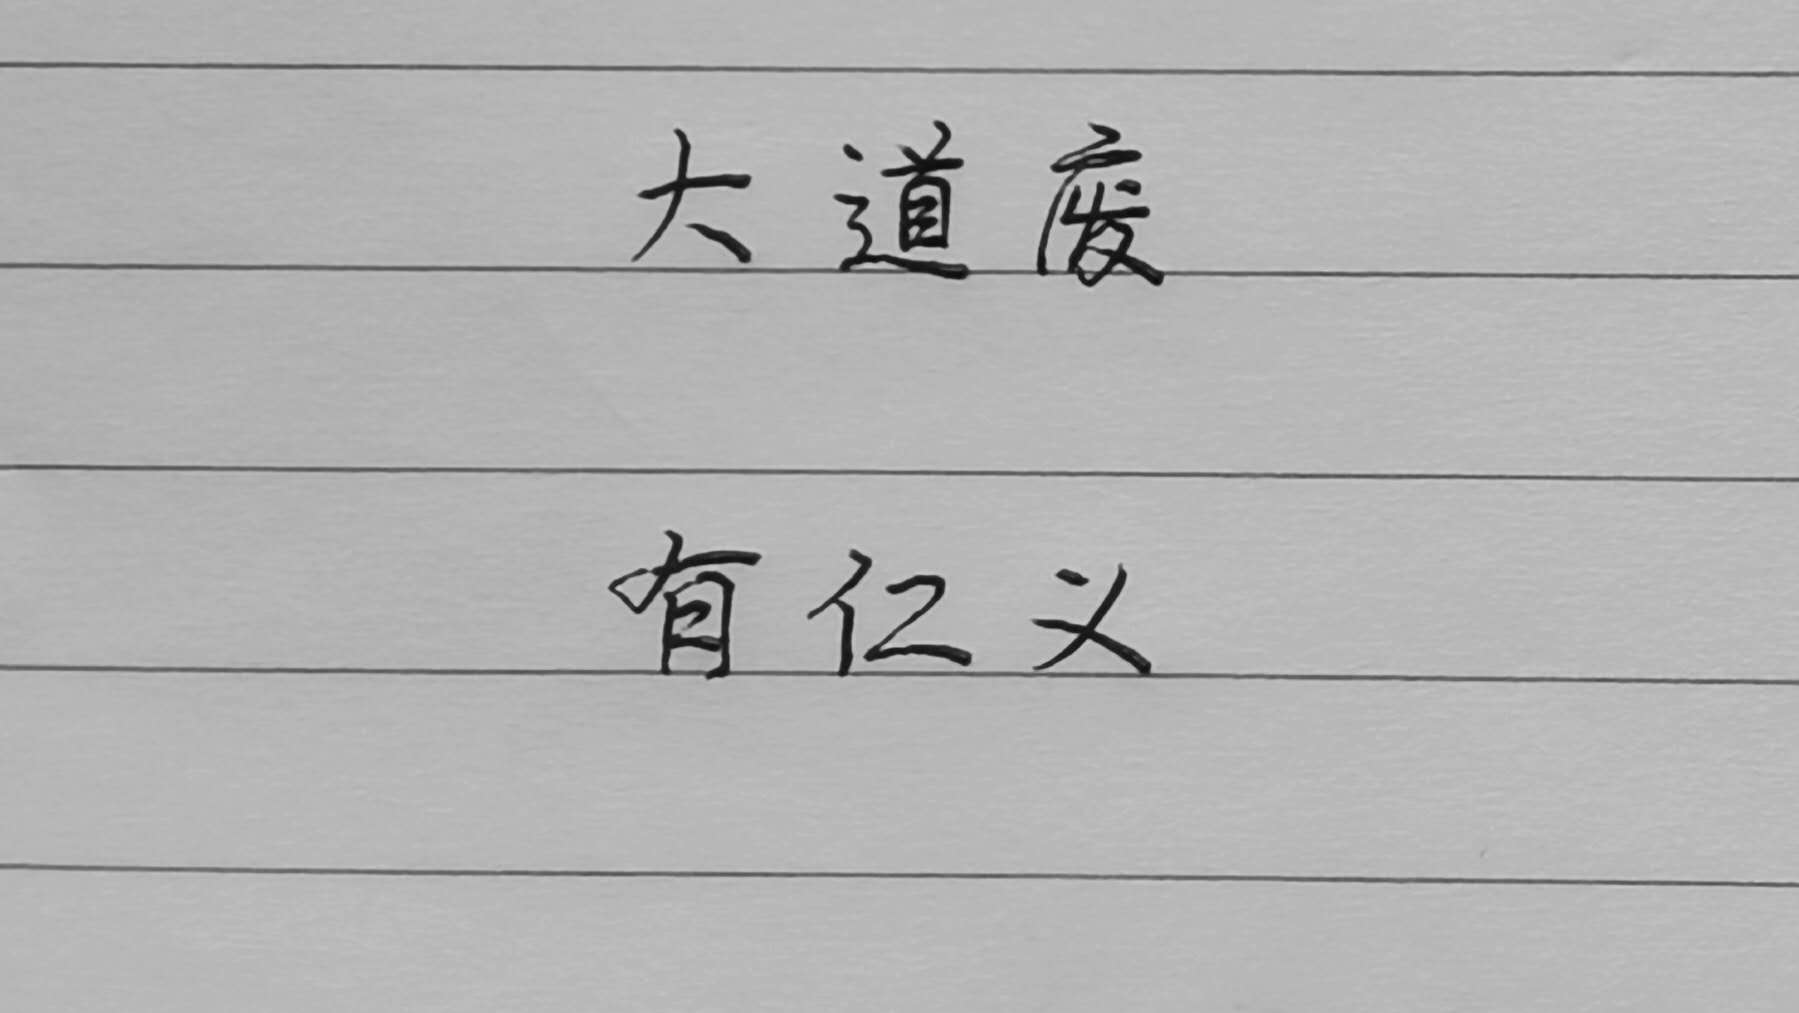 大道废
有仁义